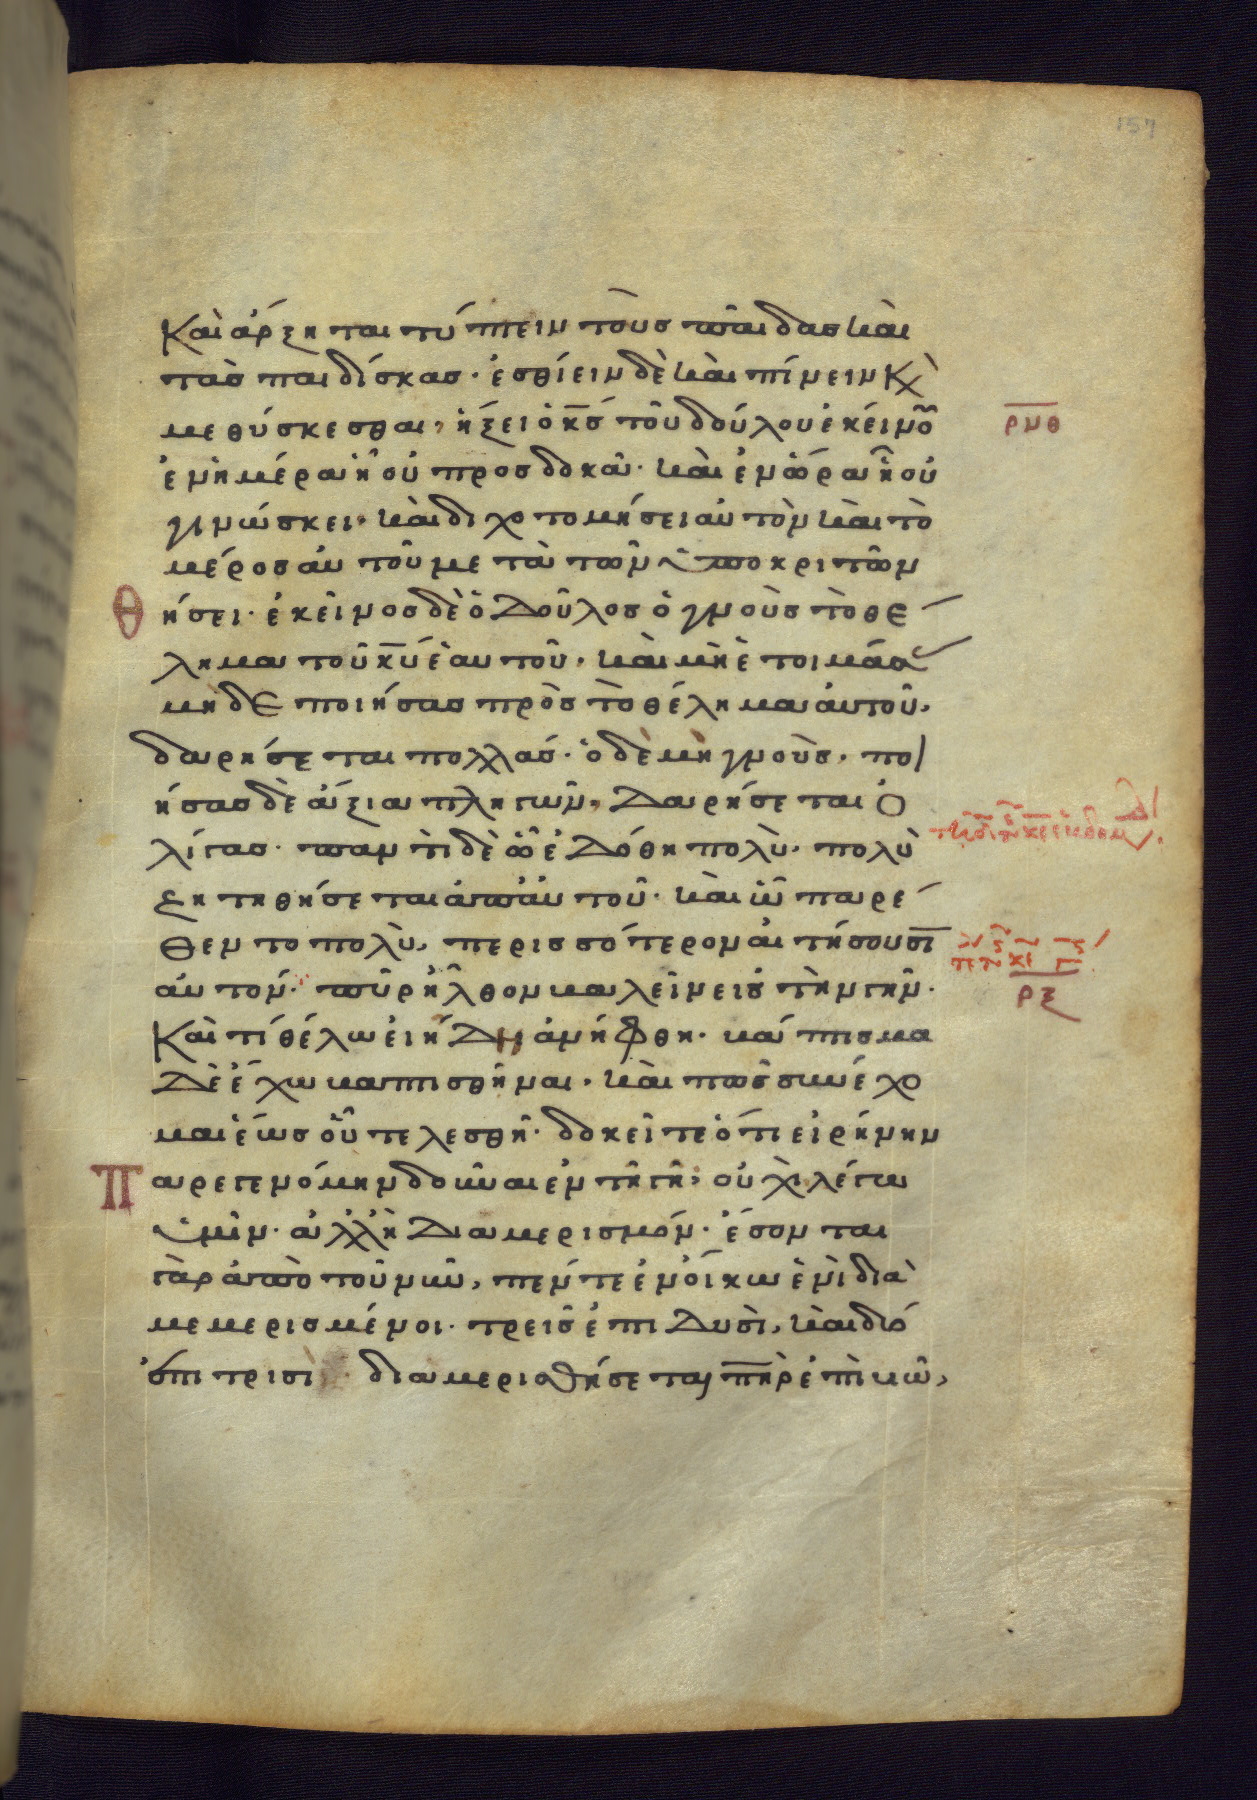 157
Καὶ ἄρξηται τύπτειν τοὺς παῖδας καὶ
τὰς παιδίσκας· ἐσθίειν δὲ καὶ πίνειν κ̀
μεθύσκεσθαι, ἥξει ὁ κ̅ς̅ τοῦ δούλου ἐκείνο͂
ρ̅ν̅θ̅
ἐν ἡμέραι ἧ οὐ προσδοκᾶ· καὶ ἐν ὥραι ἧ οὐ
γινώσκει· καὶ διχοτομήσει αὐτὸν καὶ τὸ
μέρος αὐτοῦ μετὰ τῶν ὑποκριτῶν
θήσει· ἐκεῖνος δὲ ὁ δοῦλος ὁ γνοὺς τὸ θέ
λημα τοῦ κ̅υ̅ ἑαυτοῦ· καὶ μὴ ἑτοιμάσ
μηδὲ ποιήσας πρὸς τὸ θέλημα αὐτοῦ,
δαρήσεται πολλάς· ὁ δὲ μὴ γνοὺς, ποι
ήσας δὲ ἄξια πληγῶν, δαρήσεται ὀ
λίγας· παντὶ δὲ ὧ ἐδόθη πολὺ, πολὺ
ζητηθήσεται ἀπ αὐτοῦ· καὶ ὧ παρέ
θεντο πολὺ, περισσότερον αἰτήσουσῑ
αὐτόν· πῦρ ἦλθον βαλεῖν εἰς τὴν γῆν·
ρ̅ξ̅
Καὶ τί θέλω εἰ ἤδη ἀνήφθη· βάπτισμα
δὲ ἔχω βαπτισθῆναι· καὶ πῶς συνέχο
μαι ἕως οὗ τελεσθῆ· δοκεῖτε ὅτι εἰρήνην
Παρεγενόμην δοῦναι ἐν τῆ γῆ, οὐχὶ λέγω
ὑμῖν· ἀλλ ἢ διαμερισμόν· ἔσονται
γὰρ ἀπὸ τοῦ νῦν, πέντε ἐν οἴκω ἑνὶ δια
μεμερισμένοι· τρεῖς ἐπι δυσὶ, καὶ δύο
ἐπι τρισὶ· διαμερισθήσεται π̅η̅ρ̅ ἐπὶ υ̅ῶ̅,